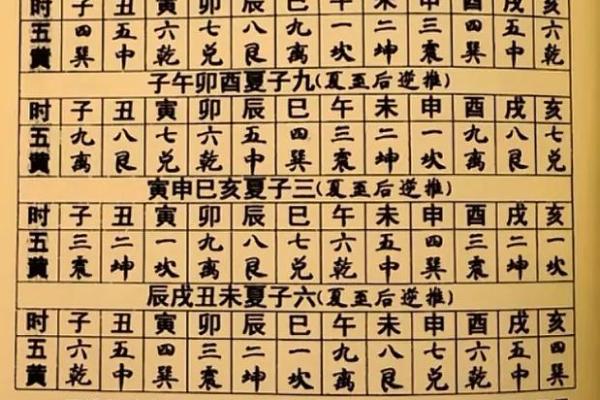 时 子 丑 寅 卯 辰 巳 午 未 申 酉 戌 亥
五 四 五 六 七 八 九 一 二 三 四 五 六
黄 巽 中 乾 兑 艮 离 坎 坤 震 巽 中 乾
子午卯酉夏子九(夏至后逆推)
时 子 丑 寅 卯 辰 巳 午 未 申 酉 戌 亥
五 九 八 七 六 五 四 三 二 一 九 八 七
黄 离 艮 兑 乾 中 巽 震 坤 坎 离 艮 兑
寅申巳亥夏子三(夏至后逆推)
时 子 丑 寅 卯 辰 巳 午 未 申 酉 戌 亥
五 三 二 一 九 八 七 六 五 四 三 二 一
黄 震 坤 坎 离 艮 兑 乾 中 巽 震 坤 坎
辰戌丑未夏子六(夏至后逆推)
时 子 丑 寅 卯 辰 巳 午 未 申 酉 戌 亥
五 六 五 四 三 二 一 九 八 七 六 五 四
黄 乾 中 巽 震 坤 坎 离 艮 兑 乾 中 巽